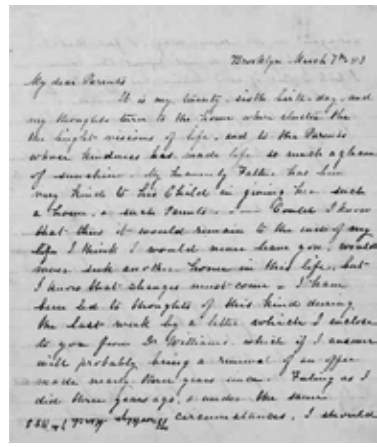 Brooklyn March 7th 43
My dear Parents
It is my twenty-sixth birth-day, and
my thoughts turn to the home where cluster the
the bright visions of life, and to the Parents
whose kindness has made life so much a gleam
of sunshine. My heavenly Father has been
very kind to his Child in giving her such
a home, & such Parents. Could I know
that thus it would remain to the end of my
life I think I would never leave you, would
never seek another home in this life, but
I know that changes must come. I have
been led to thoughts of this kind during
the last week by a letter which I enclose
to you from Dr Williams which if I answer
will probably bring a renewal of an offer
made nearly three years since. Feeling as I
did three years ago, & under the same
circumstances, I should